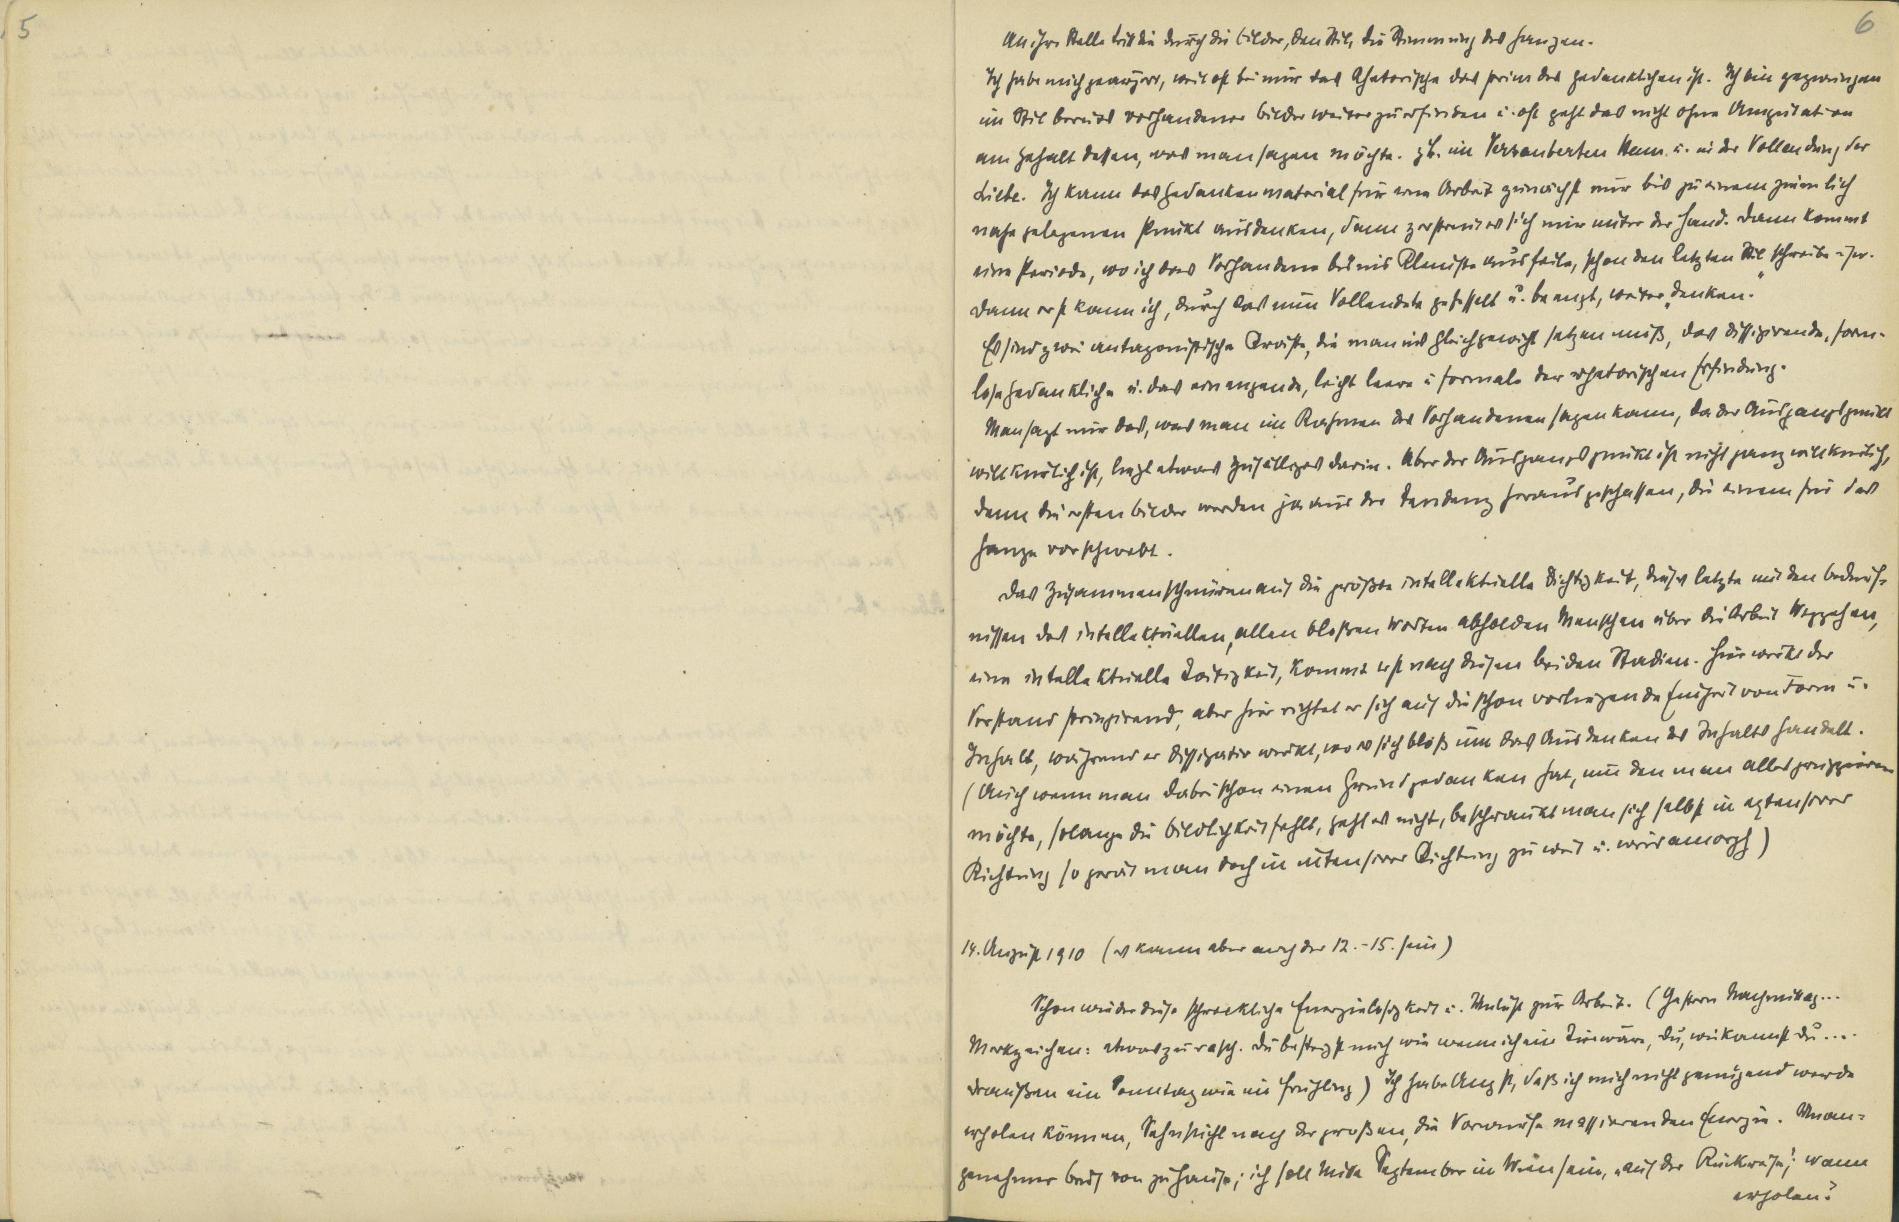 5
6
An ihre Stelle tritt die durch die Bilder, den Stil, die Stimmung des Ganzen.
Ich habe mich geärgert, weil oft bei mir das Rhetorische das prius des Gedanklichen ist. Ich bin gezwungen
im Stil bereits vorhandener Bilder weiterzuerfinden u. oft geht das nicht ohne Amputation
am Gehalt dessen, was man sagen möchte. zb. im Verzauberten Haus u. in der Vollendung der
Liebe. Ich kann das Gedankenmaterial für eine Arbeit zunächst nur bis zu einem ziemlich
nahe gelegenen Punkt ausdenken, dann zerstreut es sich mir unter der Hand. Dann kommt
eine Periode, wo ich das Vorhandene bis ins Kleinste ausfeile, schon den letzten Stil schreibe usw.
Dann erst kann ich, durch das nun Vollendete gefesselt u. beengt, weiter „denken."
Es sind zwei antagonistische Kräfte, die man ins Gleichgewicht setzen muß, das dissipierende, form-
lose Gedankliche u. das einengende, leicht leere u formale der rhetorischen Erfindung.
Man sagt nur das, was man im Rahmen des Vorhandenen sagen kann, da der Ausgangspunkt
willkürlich ist, liegt etwas Zufälliges darin. Aber der Ausgangspunkt ist nicht ganz willkürlich,
denn die ersten Bilder werden ja aus der Tendenz herausgeschaffen, die einem für das
Ganze vorschwebt.
Das Zusammenschnüren auf die größte intellektuelle Dichtigkeit, dieses letzte mit den Bedürf-
nissen des intellektuellen, allen bloßen Worten abholden Menschen über die Arbeit Weggehen,
eine intellektuelle Tätigkeit, kommt erst nach diesen beiden Stadien. Hier wirkt der
Verstand stringirend, aber hier richtet er sich auf die schon vorliegende Einheit von Form u.
Inhalt, während er dissipativ wirkt, wo es sich bloß um das Ausdenken des Inhalts handelt.
(Auch wenn man dabei schon einen Grundgedanken hat, um den man alles gruppieren
möchte, solange die Bildlichkeit fehlt, geht es nicht, beschränkt man sich selbst in extensiver
Richtung so gerät man doch in intensiver Richtung zu weit u. wird amorph)
14. August 1910 (es kann aber auch der 12.-15. sein)
Schon wieder diese schreckliche Energielosigkeit u. Unlust zur Arbeit. (Gestern Nachmittag...
Merkzeichen: etwas zu rasch. Du besteigst mich wie wenn ich ein Tier wäre, du, wie kannst du....
draußen ein Sonntag wie im Frühling) Ich habe Angst, daß ich mich nicht genügend werde
erholen können, Sehnsucht nach der großen, die Vorwürfe massierenden Energie. Unan-
genehmer Brief von zuhause; ich soll Mitte September in Wien sein, „auf der Rückreise"; wann
erholen?